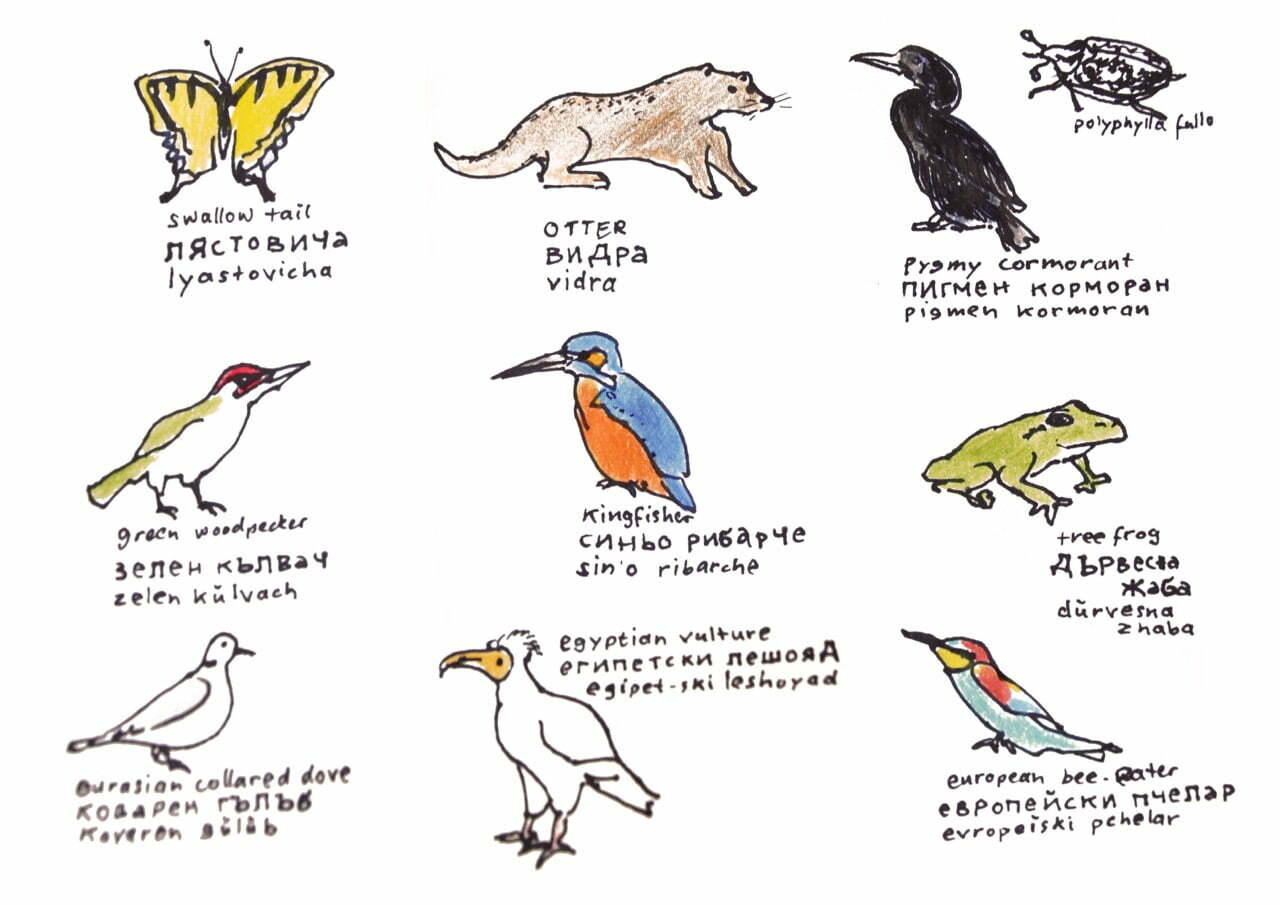 swallow tail
ЛЯСТОВИЧА
lyastovicha
OTTER
ВИДРА
vidra
pygmy cormorant
ПИГМЕН КОРМОРАН
pigmen kormoran
polyphylla fullo
green woodpecker
ЗЕЛЕН КЪЛВАЧ
zelen kŭlvach
kingfisher
СИНЬО РИБАРЧЕ
sin'o ribarche
tree frog
ДЪРВЕСНА
ЖАБА
dŭrvesna
zhaba
eurasian collared dove
КОВАРЕН ГЪЛЪБ
kovaren gŭlŭb
egyptian vulture
ЕГИПЕТСКИ ЛЕШОЯД
egipet-ski leshoyad
european bee-eater
ЕВРОПЕЙСКИ ПЧЕЛАР
evropeĭski pchelar